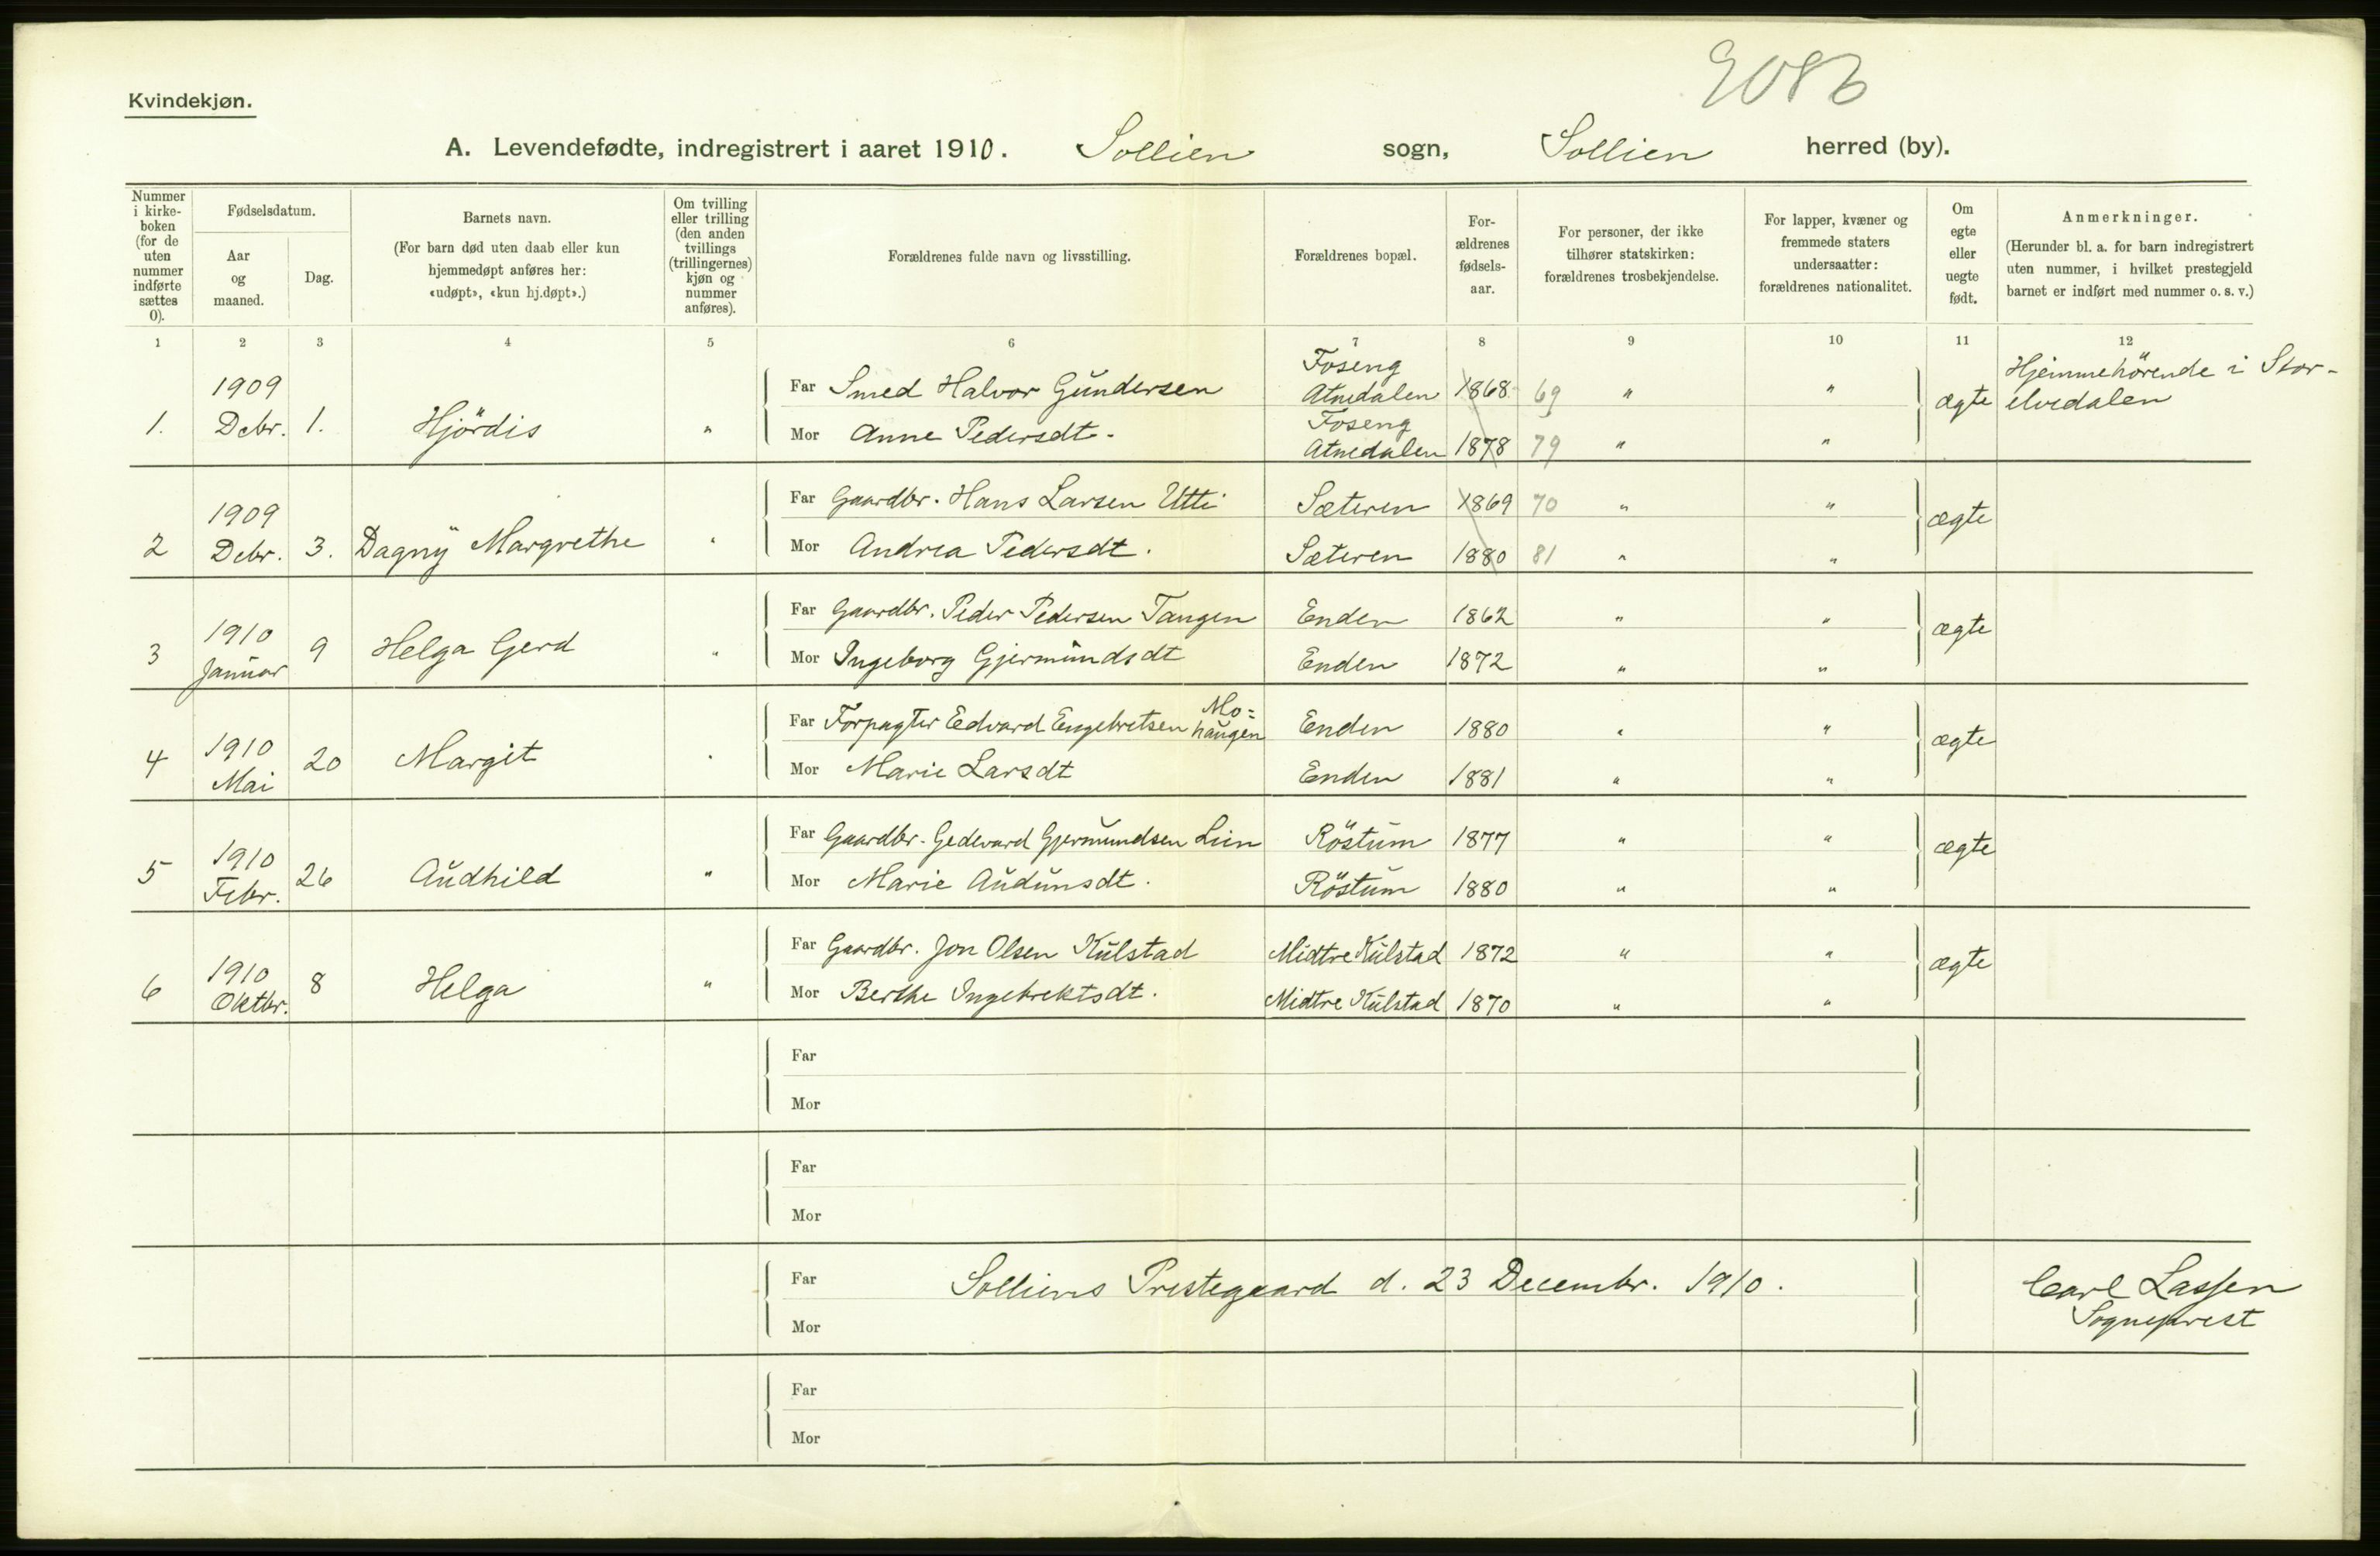 9086
Kvindekjøn.
A. Levendefødte, indregistrert i aaret 1910. Sollien sogn, Sollien herred (by).
Nummer i kirkeboken (for de uten nummer indførte sættes 0).
Fødselsdatum.
Aar og maaned.
Dag.
Barnets navn.
(For barn død uten daab eller kun hjemmedøpt anføres her: «udøpt», «kun hj.døpt».)
Om tvilling eller trilling (den anden tvillings (trillingernes) kjøn og nummer anføres).
Forældrenes fulde navn og livsstilling.
Forældrenes bopæl.
Forældrenes fødselsaar.
For personer, der ikke tilhører statskirken: forældrenes trosbekjendelse.
For lapper, kvæner og fremmede staters undersaatter: forældrenes nationalitet.
Om egte eller uegte født.
Anmerkninger.
(Herunder bl. a. for barn indregistrert uten nummer, i hvilket prestegjeld barnet er indført med nummer o. s. v.)
1 2 3 4 5 6 7 8 9 10 11 12
1. 1909 Debr. 1. Hjördis "
Far Smed Halvor Gundersen Foseng Atnedalen 1868 69 " " ægte Hjemmehörende i Stor-elvedalen
Mor Anne Pedersdt. Foseng Atnedalen 1878 79 " "
2 1909 Debr. 3. Dagny Margrethe "
Far Gaardbr. Hans Larsen Utti Sæteren 1869 70 " " ægte
Mor Andrea Pedersdt. Sæteren 1880 81 " "
3 1910 Januar 9 Helga Gerd "
Far Gaardbr. Peder Pedersen Tangen Enden 1862 " " ægte
Mor Ingeborg Gjermundsdt Enden 1872 " "
4 1910 Mai 20 Margit "
Far Forpagter Edvard Engebretsen Mo=haugen Enden 1880 " " ægte
Mor Marie Larsdt Enden 1881 " "
5 1910 Febr. 26 Audhild "
Far Gaardbr. Gedevard Gjermundsen Lien Röstum 1877 " " ægte
Mor Marie Audunsdt. Röstum 1880 " "
6 1910 Oktbr. 8 Helga "
Far Gaardbr. Jon Olsen Kulstad Midtre Kulstad 1872 " " ægte
Mor Berthe Ingebrektsdt. Midtre Kulstad 1870 " "
Far
Mor
Far
Mor
Far Solliens Prestegaard d. 23 Decembr. 1910. Carl Lassen
Mor Sogneprest
Far
Mor